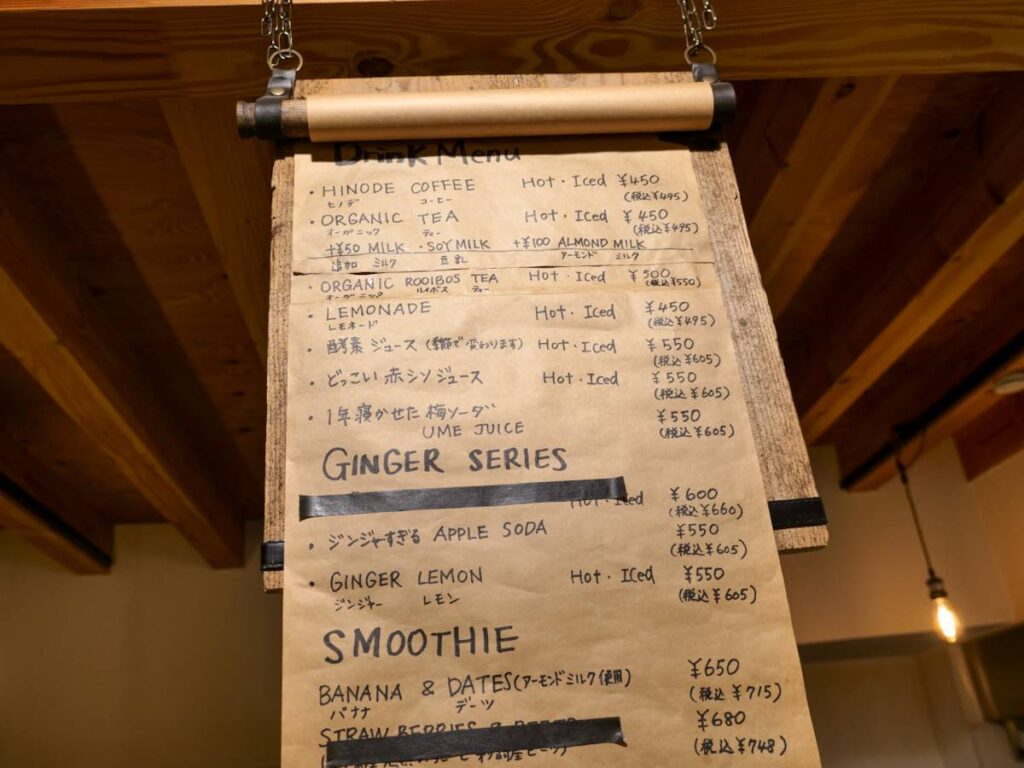 Drink Menu
・HINODE COFFEE Hot・Iced ¥450
ヒノデ コーヒー (税込¥495)
・ORGANIC TEA Hot・Iced ¥450
オーガニック ティー (税込¥495)
+¥50 MILK ・SOY MILK +¥100 ALMOND MILK
追加 ミルク 豆乳 アーモンド ミルク
・ORGANIC ROOIBOS TEA Hot・Iced ¥500
オーガニック ルイボス ティー (税込¥550)
・LEMONADE Hot・Iced ¥450
レモネード (税込¥495)
・酵素ジュース(季節で変わります) Hot・Iced ¥550
(税込¥605)
・どっこい赤シソジュース Hot・Iced ¥550
(税込¥605)
・1年寝かせた梅ソーダ ¥550
UME JUICE (税込¥605)
GINGER SERIES
Hot・Iced ¥600
(税込¥660)
・ジンジャーすぎる APPLE SODA ¥550
(税込¥605)
・GINGER LEMON Hot・Iced ¥550
ジンジャー レモン (税込¥605)
SMOOTHIE
BANANA & DATES(アーモンドミルク使用) ¥650
バナナ デーツ (税込¥715)
STRAWBERRIES & ¥680
(税込¥748)